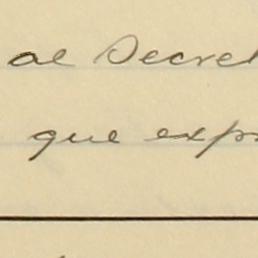 al Secret
que expr